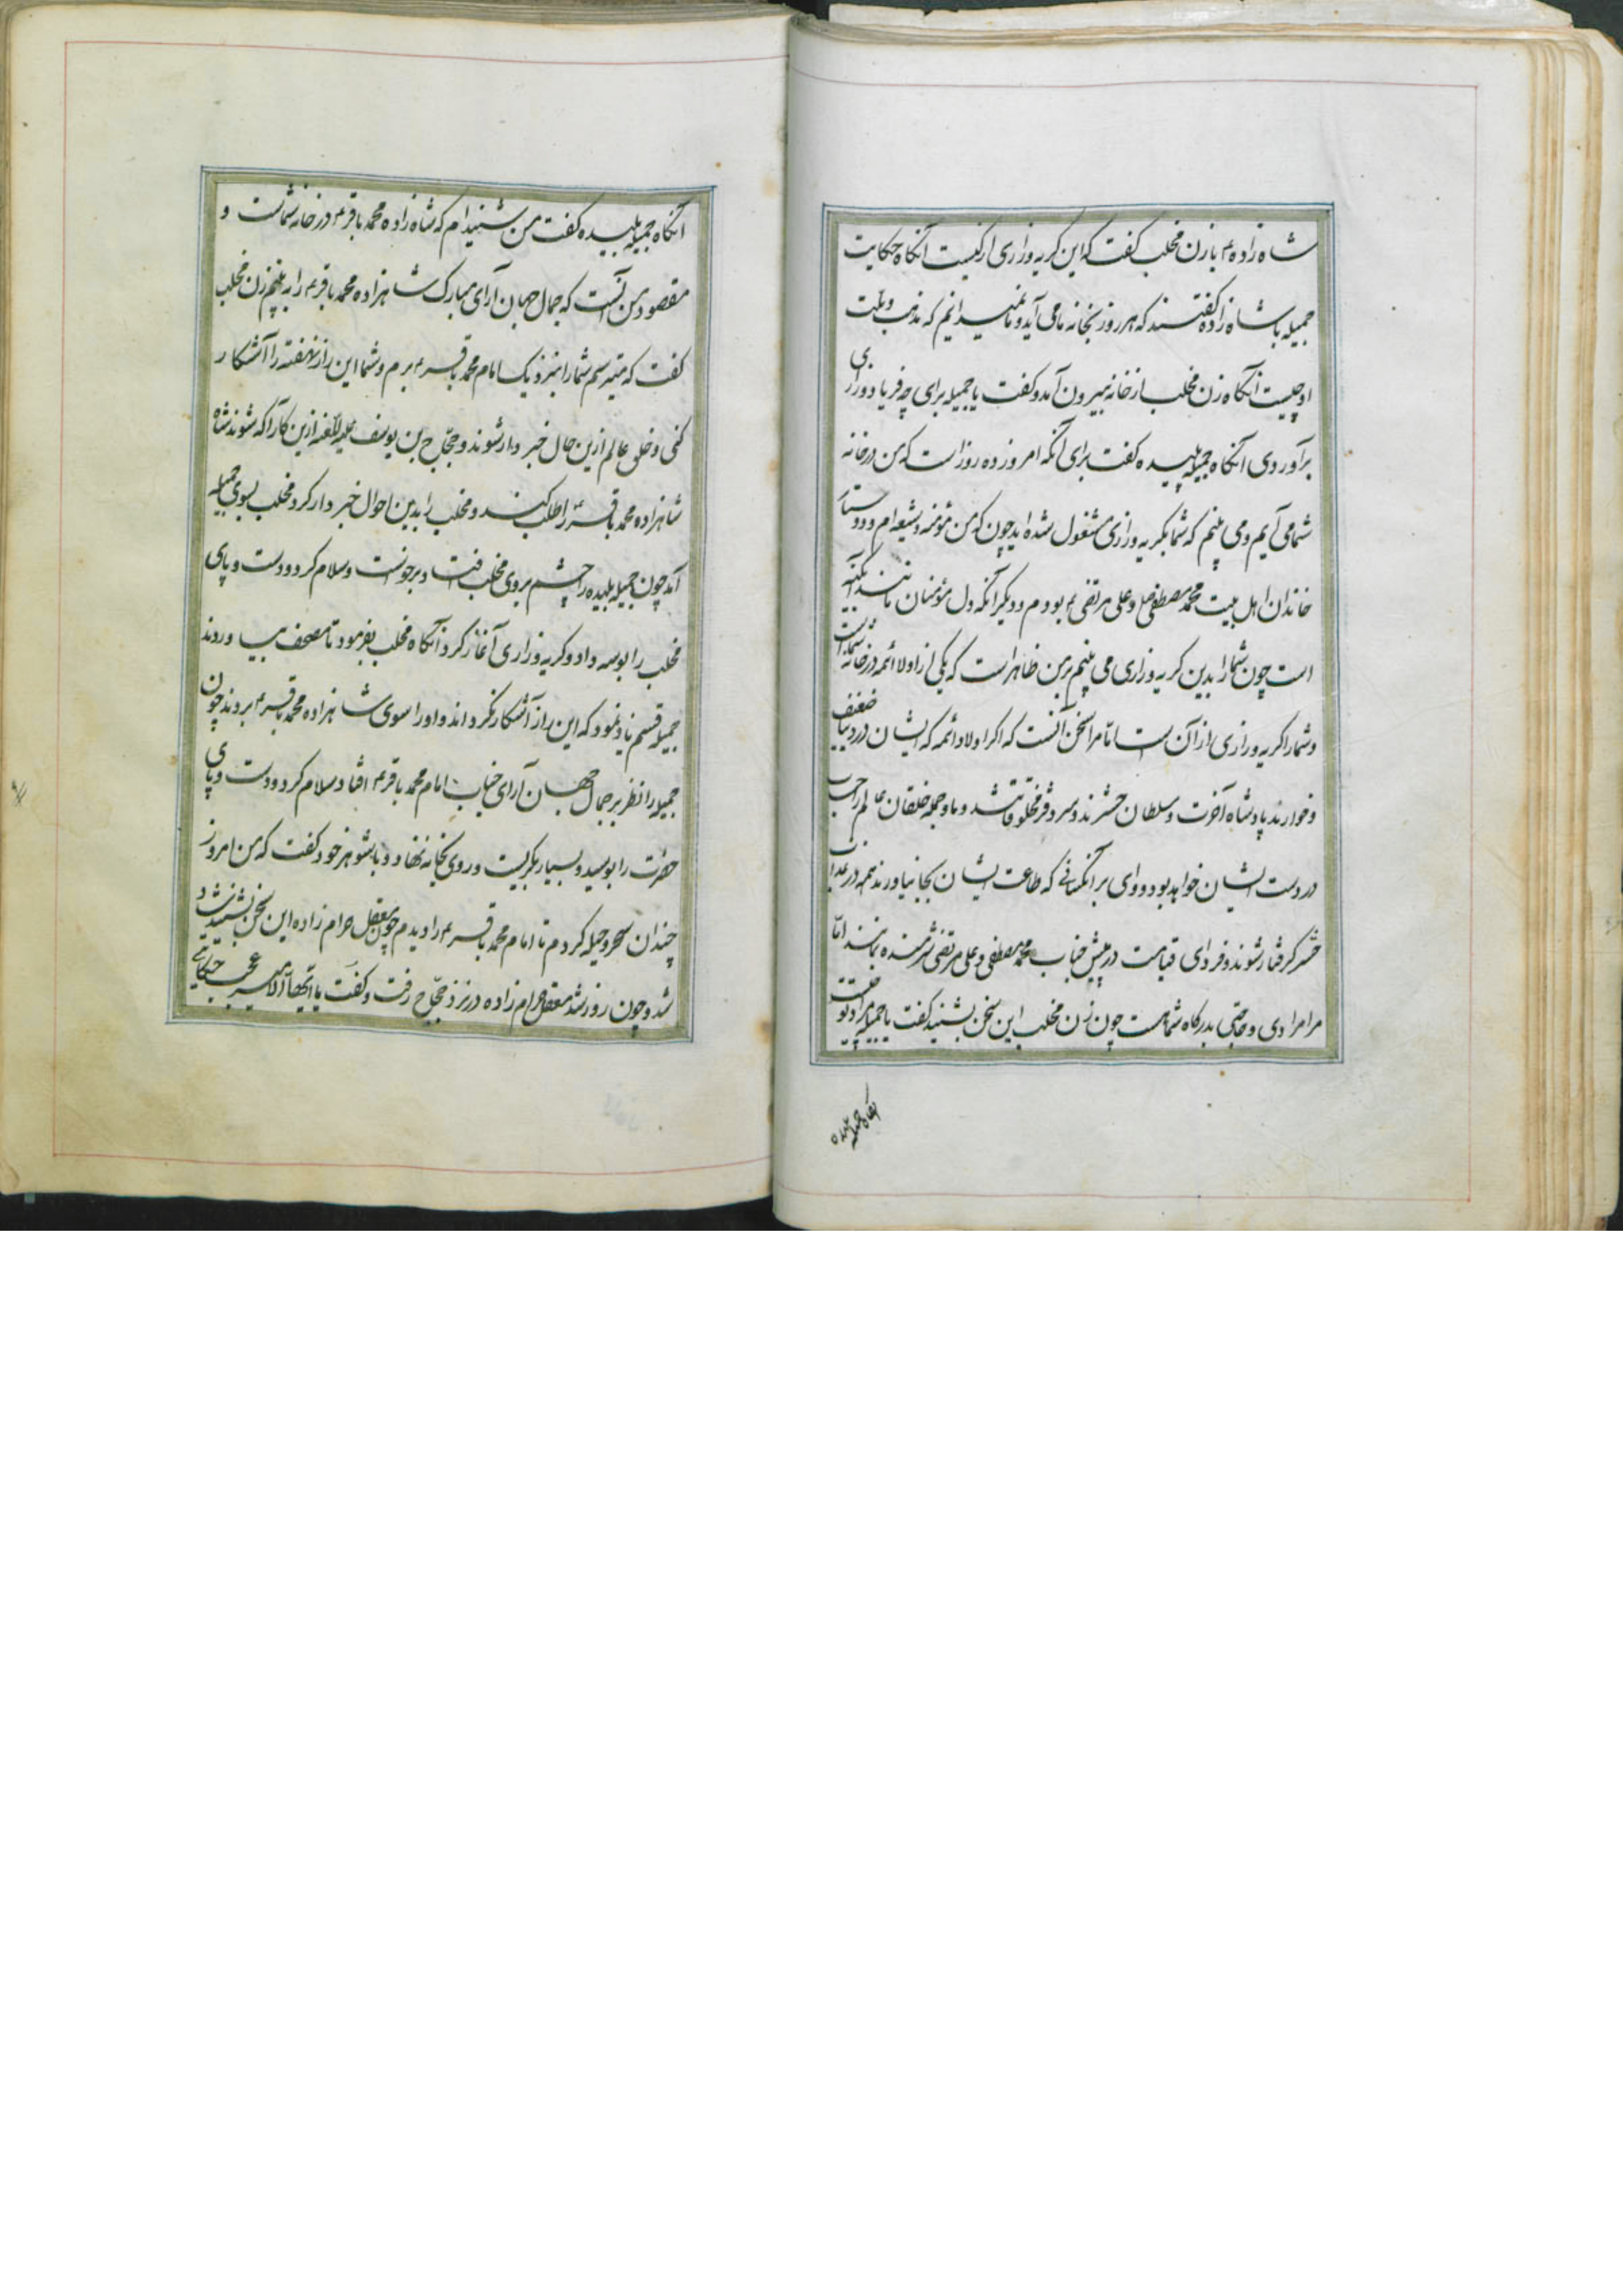 شاه زاده ۴ با زن مخلب کفت که این کریه وزاری از کیست آنکاه حکایت
جمیله با شاه زاده کفتند که هر روز بخانه ما می آید و ما نمیدانیم که مذهب و ملت
او چیست آنکاه زن مخلب از خانه بیرون آمد و کفت یا جمیله برای چه فریاد و زاری
برآوردی آنکاه جمیله پلیده کفت برای آنکه امروز ده روز است که من در خانه
شما می آیم و می بینم که شما بکریه وزاری مشغول شده اید چون که من مؤمنه و شیعه ام و دوستار
خاندان اهل بیت محمد مصطفی و علی مرتضی ۴ بودم و دیکر آنکه دل مؤمنان مانند آئینه
است چون شما را بدین کریه وزاری می بینم بر من ظاهر است که یکی از اولاد ائمه در خانه شماست
و شما را کریه وزاری از آن است اما مرا سخن آنست که اکر اولاد ائمه که ایشان در دنیا ضعیف
و خوارند پادشاه آخرت و سلطان حشرند و سرو فر مخلوقاتند و ما و جمله خلقان عالم را حساب
در دست ایشان خواهد بود و وای بر آنکسانی که طاعت ایشان بجا نیاورند هم در عذاب
حشر کرفتار شوند و فردای قیامت در پیش جناب محمد مصطفی و علی مرتضی شرمنده بمانند اما
مرا مرادی و حاجتی بدرکاه شما هست چون زن مخلب این سخن بشنید کفت یا جمیله مراد تو چیست
آنکاه جمیله پلیده
آنکاه جمیله پلیده کفت من شنیده ام که شاه زاده محمد باقر ۴ در خانه شماست و
مقصود من آنست که جمال جهان آرای مبارک شاهزاده محمد باقر ۴ را به بینم زن مخلب
کفت که میترسم شما را بنزدیک امام محمد باقر ۴ برم و شما این راز نهفته را آشکار
کنی و خلق عالم ازین حال خبر دار شوند و حجاج بن یوسف علیه اللعنه ازین کار آکه شوند
شاهزاده محمد باقر ۴ را طلب کنند و مخلب را بدین احوال خبر دار کرد مخلب بسوی جمیله
آمد چون جمیله پلیده را چشم بروی مخلب افتاد برخواست و سلام کرد و دست و پای
مخلب را بوسه داد و کریه وزاری آغاز کرد آنکاه مخلب بفرمود تا مصحف بیاوردند
جمیله قسم یاد نمود که این راز آشکار نکرداند و او را سوی شاهزاده محمد باقر ۴ بردند چون
جمیله را نظر بر جمال جهان آرای جناب امام محمد باقر ۴ افتاد سلام کرد و دست و پای
حضرت را بوسید و بسیار بکریست و روی بخانه نهاد و با شوهر خود کفت که من امروز
چندان سحر و حیله کردم تا امام محمد باقر ۴ را دیدم چون معقل حرام زاده این سخن بشنید شاد
شد و چون روز شد معقل حرام زاده در نزد حجاج رفت و کفت یا ایها الامیر عجب حکایتی